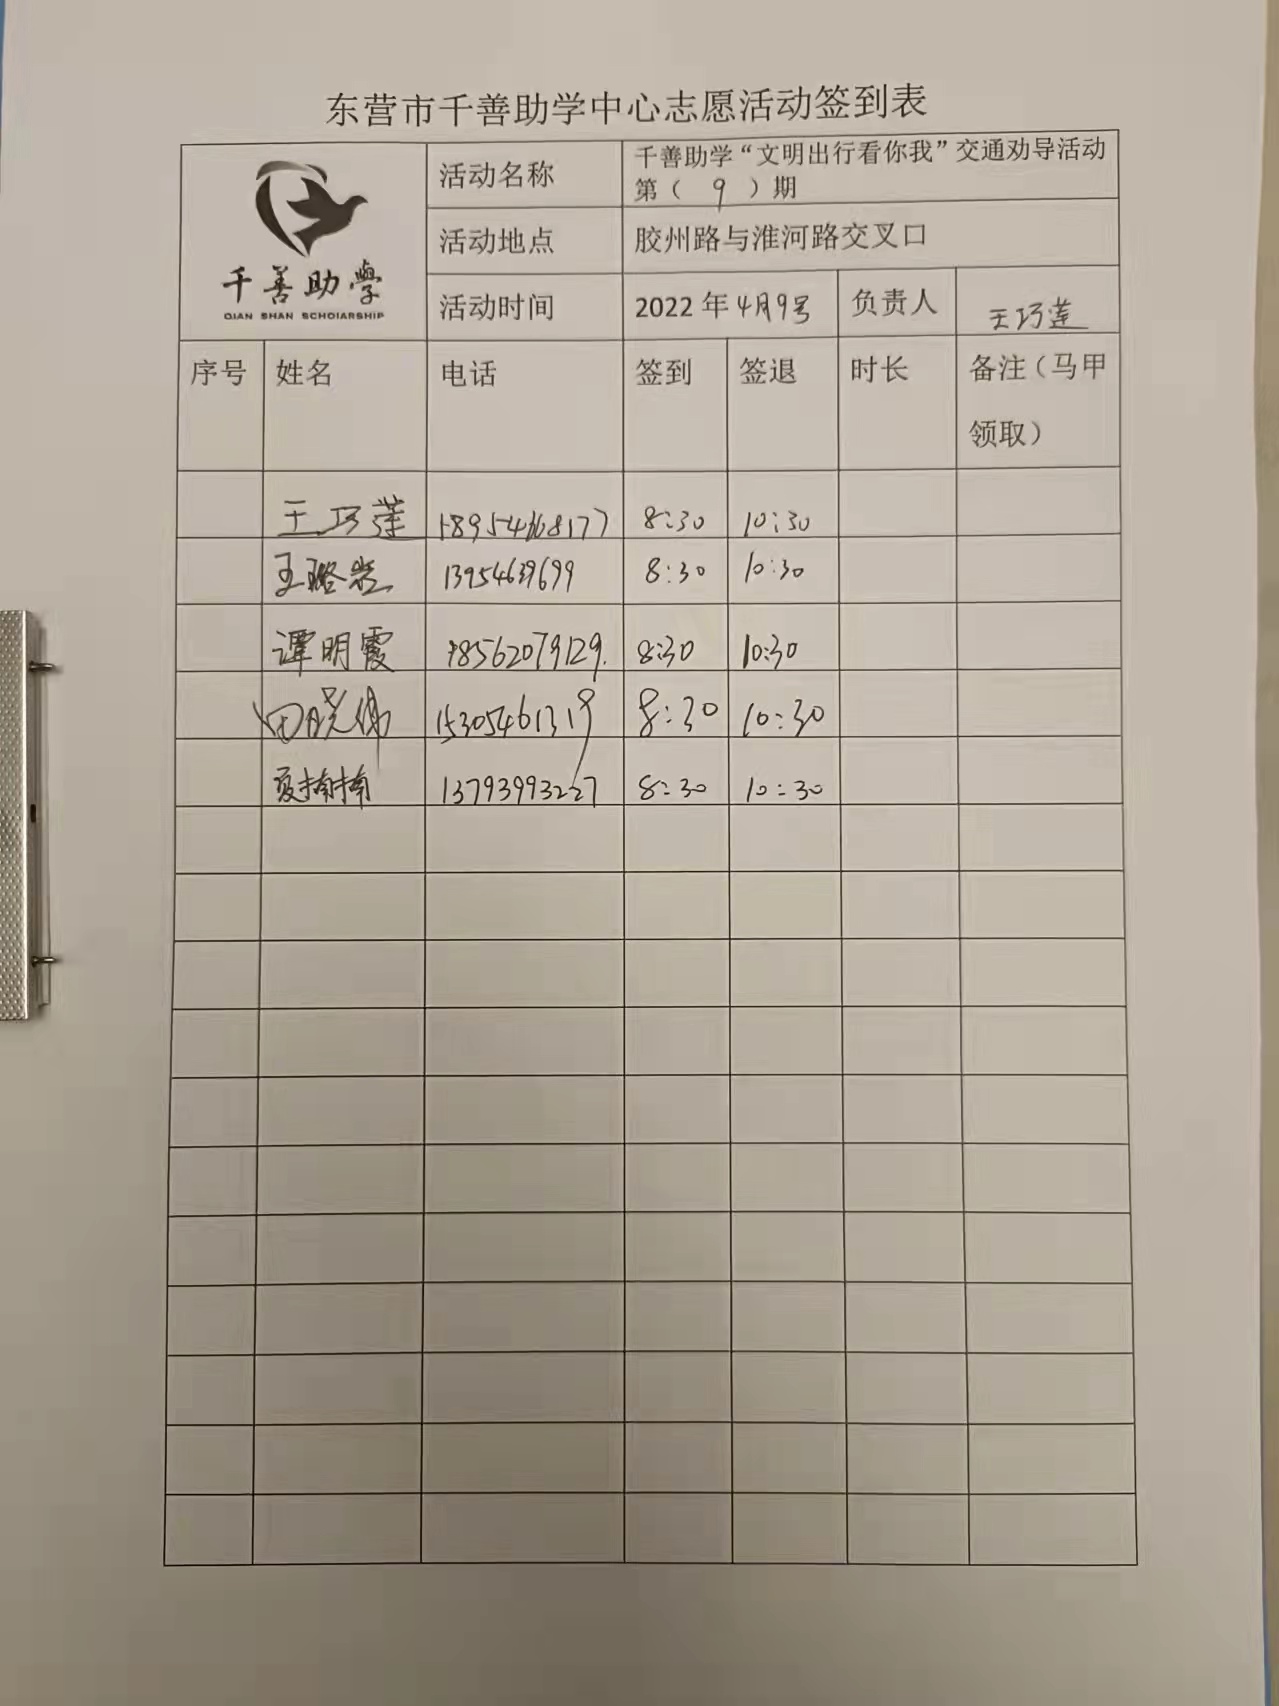 东营市千善助学中心志愿活动签到表
千善助学
QIAN SHAN SCHOIARSHIP
活动名称 千善助学“文明出行看你我”交通劝导活动
第（ 9 ）期
活动地点 胶州路与淮河路交叉口
活动时间 2022年4月9号 负责人 王巧莲
序号 姓名 电话 签到 签退 时长 备注（马甲
领取）
王巧莲 18954668177 8:30 10:30
王璐 13954639699 8:30 10:30
谭明霞 18562079129. 8:30 10:30
田晓伟 15305461319 8:30 10:30
夏楠楠 13793993227 8:30 10:30